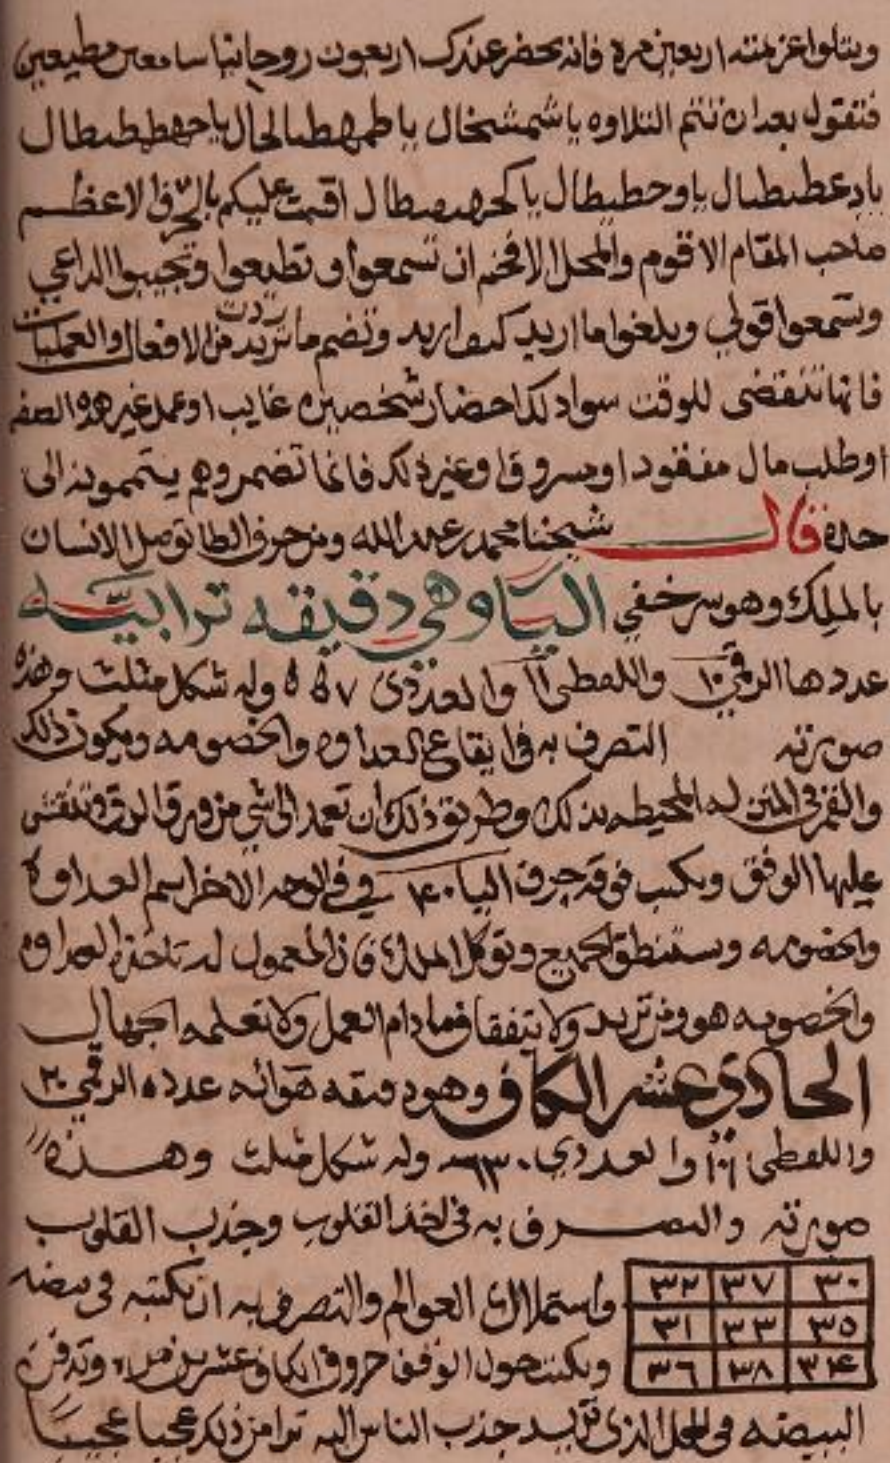 ويتلوا عزيمته اربعين مرة فانه يحضر عندك اربعون روحانيا سامعين مطيعين
فتقول بعد ان تتم التلاوه ياشمشخال ياطمهطالحال ياجهططبطال
اقمت عليكم بالحرف الاعظم
صاحب المقام الاقوم والمحل الافخم ان تسمعوا وتطيعوا وتجيبوا الداعي
وتسمعوا قولي وبلغوا ما اريد كيف اريد وتضم ما تريد من الافعال والعمليات
فانها تنقضى للوقت سواء لك احضار شخصين غايب او عمل غير هذه الصفه
او طلب مال مفقود او مسروق او غير ذلك فانما تضمر وهم يتممونه الى
حده قال شيخنا محمد عبد الله ومن حرف الطا توصل الانسان
بالملك وهو سر خفي اليا وهي دقيقه ترابيه
عددها الرقمي ١٠ واللفظي ١١ والعددي ٥٧٥ وله شكل مثلث وهذه
صورته التصرف به في ايقاع العداوه والخصومه ويكون ذلك
والقمر في المنزله المحيطه بذلك وطريق ذلك ان تعمد الى شي من ورق
عليها الوفق وتكتب فوقه حرف اليا ٤٠ في الوجه الاخر اسم العداوة
والخصومه وتستنطق الجميع وتوكل الملك فان المعمول له تاخذه العداوه
والخصومه هو ومن تريد ولا يتفقا فما دام العمل ولا تعلمه الجهال
الحادى عشر الكاف وهو دقيقه هوائه عدده الرقمي ٢٠
واللفظي ١٠١ والعددي ٦٣٠ وله شكل مثلث وهذه
صورته والتصرف به في اخذ القلوب وجذب القلوب
واستملاك العوالم والتصرف به ان تكتبه في بيضه
٣٠ ٣٧ ٣٢
٣٥ ٣٣ ٣١
٣٤ ٣٨ ٣٦
وتكتب حول الوفق حروف الكاف عشرين مره وتدفن
البيضه في المحل الذى تريد جذب الناس اليه ترا من ذلك عجبا عجيبا